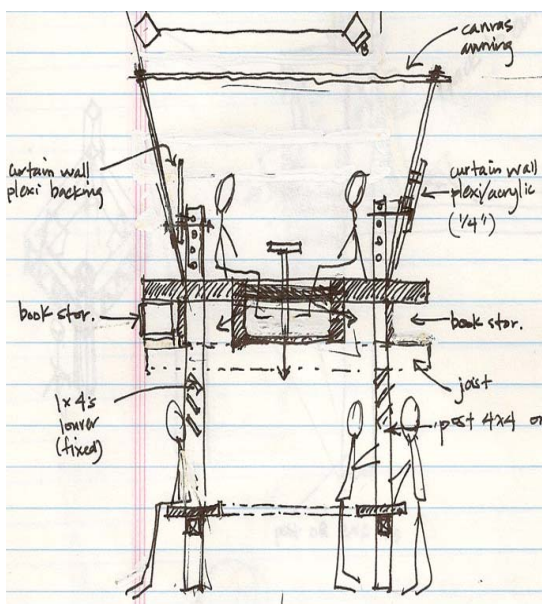 canvas
awning
curtain wall
plexi backing
curtain wall
plexi/acrylic
(1/4")
book stor.
book stor.
joist
1x4s
louver
(fixed)
post 4x4 or